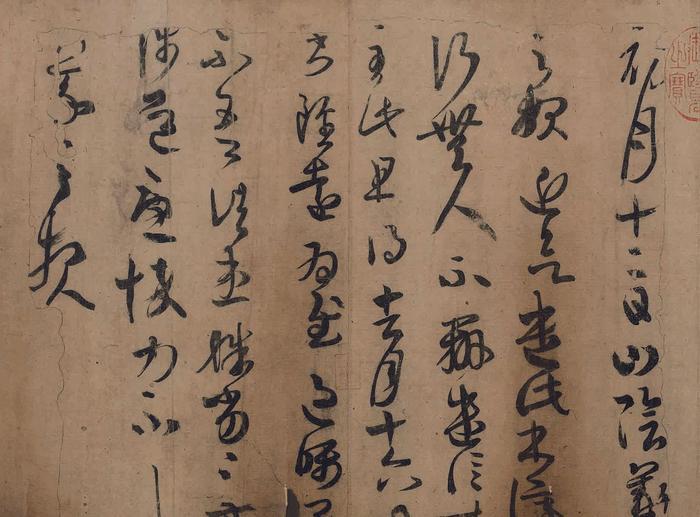 初月十二日山陰羲
之報近欲遣此書停
行無人不辦遣信
至此且得去月十六日
書雖遠為慰過囑
不吾諸患殊劣〻方
涉道憂悴力不
羲之報